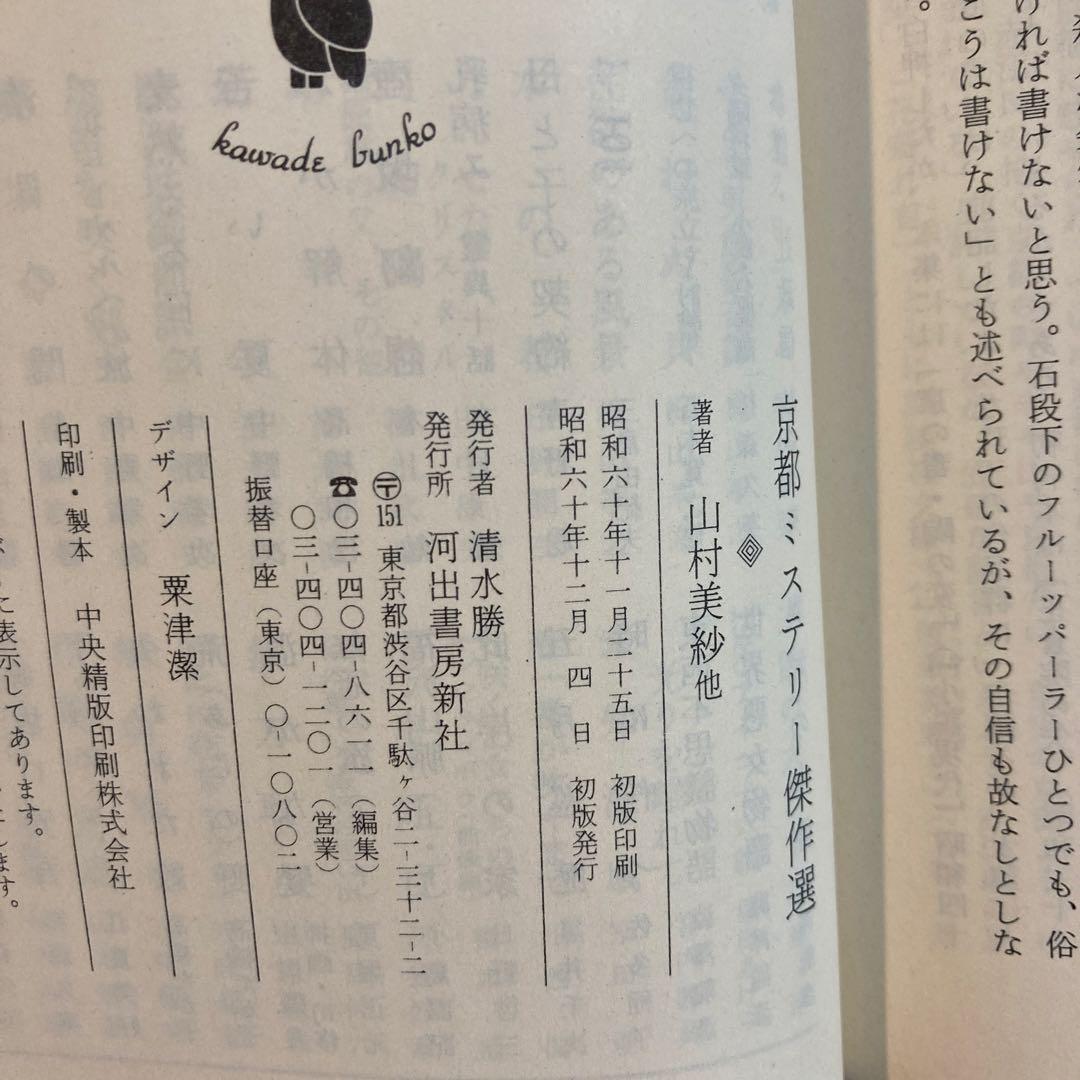 ければ書けないと思う。石段下のフルーツパーラーひとつでも、俗
こうは書けない」とも述べられているが、その自信も故なしとしな
。
kawade bunko
京都ミステリー傑作選
著者 山村美紗他
昭和六十年十一月二十五日 初版印刷
昭和六十年十二月 四 日 初版発行
発行者 清水勝
発行所 河出書房新社
〒151 東京都渋谷区千駄ヶ谷二-三十二-二
☎〇三-四〇四-八六一一（編集）
〇三-四〇四-一二〇一（営業）
振替口座（東京）〇-一〇八〇二
デザイン 粟津潔
印刷・製本 中央精版印刷株式会社
表示してあります。
します。